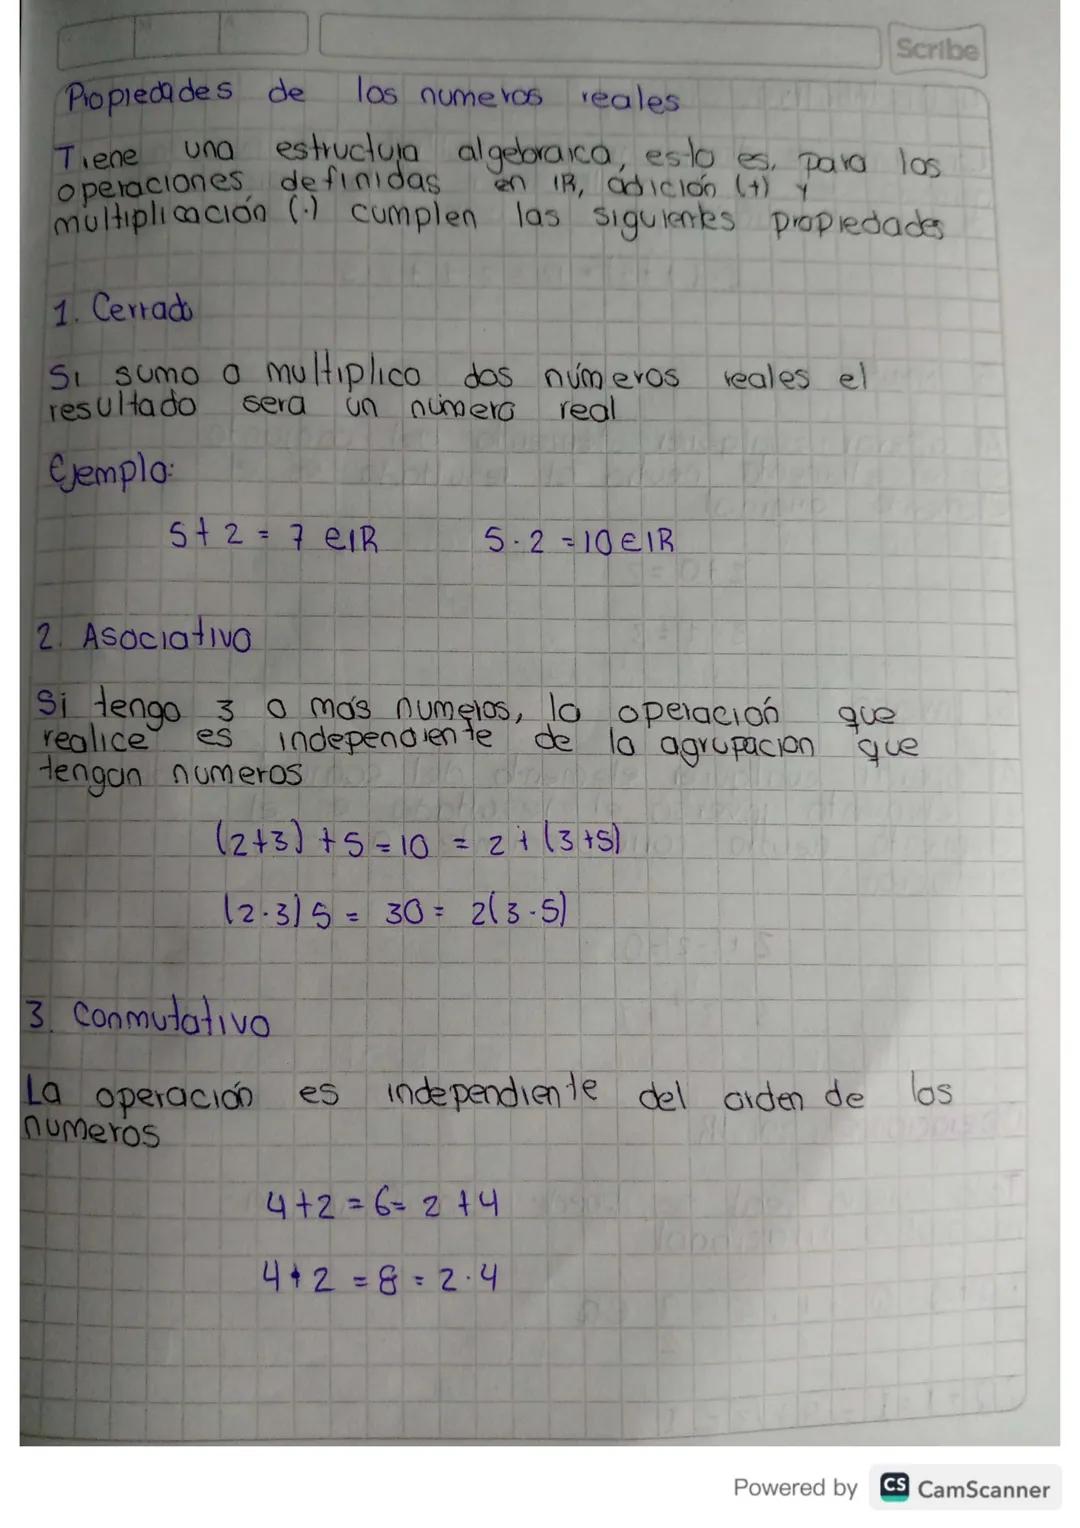 Scribe
Propiedades de los numeros reales
Tiene una estructura algebraica, esto es, para los
operaciones definidas en IR, adición (+) y
multiplicación (·) cumplen las siguientes propiedades
1. Cerrado
Si sumo o multiplico dos números reales el
resultado sera un número real
Ejemplo:
5+2=7 ∈IR 5·2=10∈IR
2. Asociativo
Si tengo 3 o más numeros, la operación que
realice es independiente de la agrupacion que
tengan numeros
(2+3)+5=10 = 2+(3+5)
(2·3)5 = 30= 2(3·5)
3. Conmutativo
La operación es independiente del orden de los
numeros
4+2=6=2+4
4·2=8=2·4
Powered by CS CamScanner